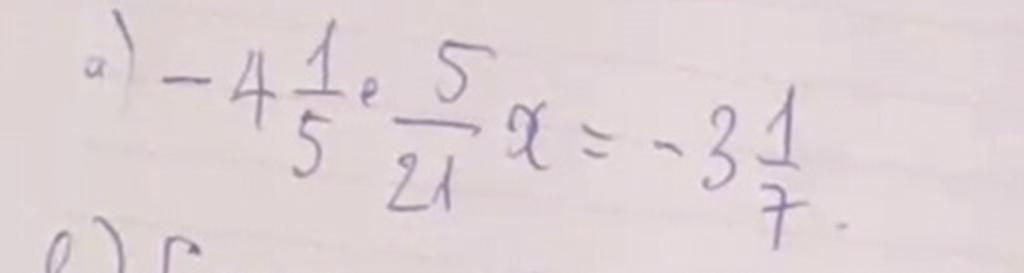 a) -4 1/5 • 5/21 x = -3 1/7.